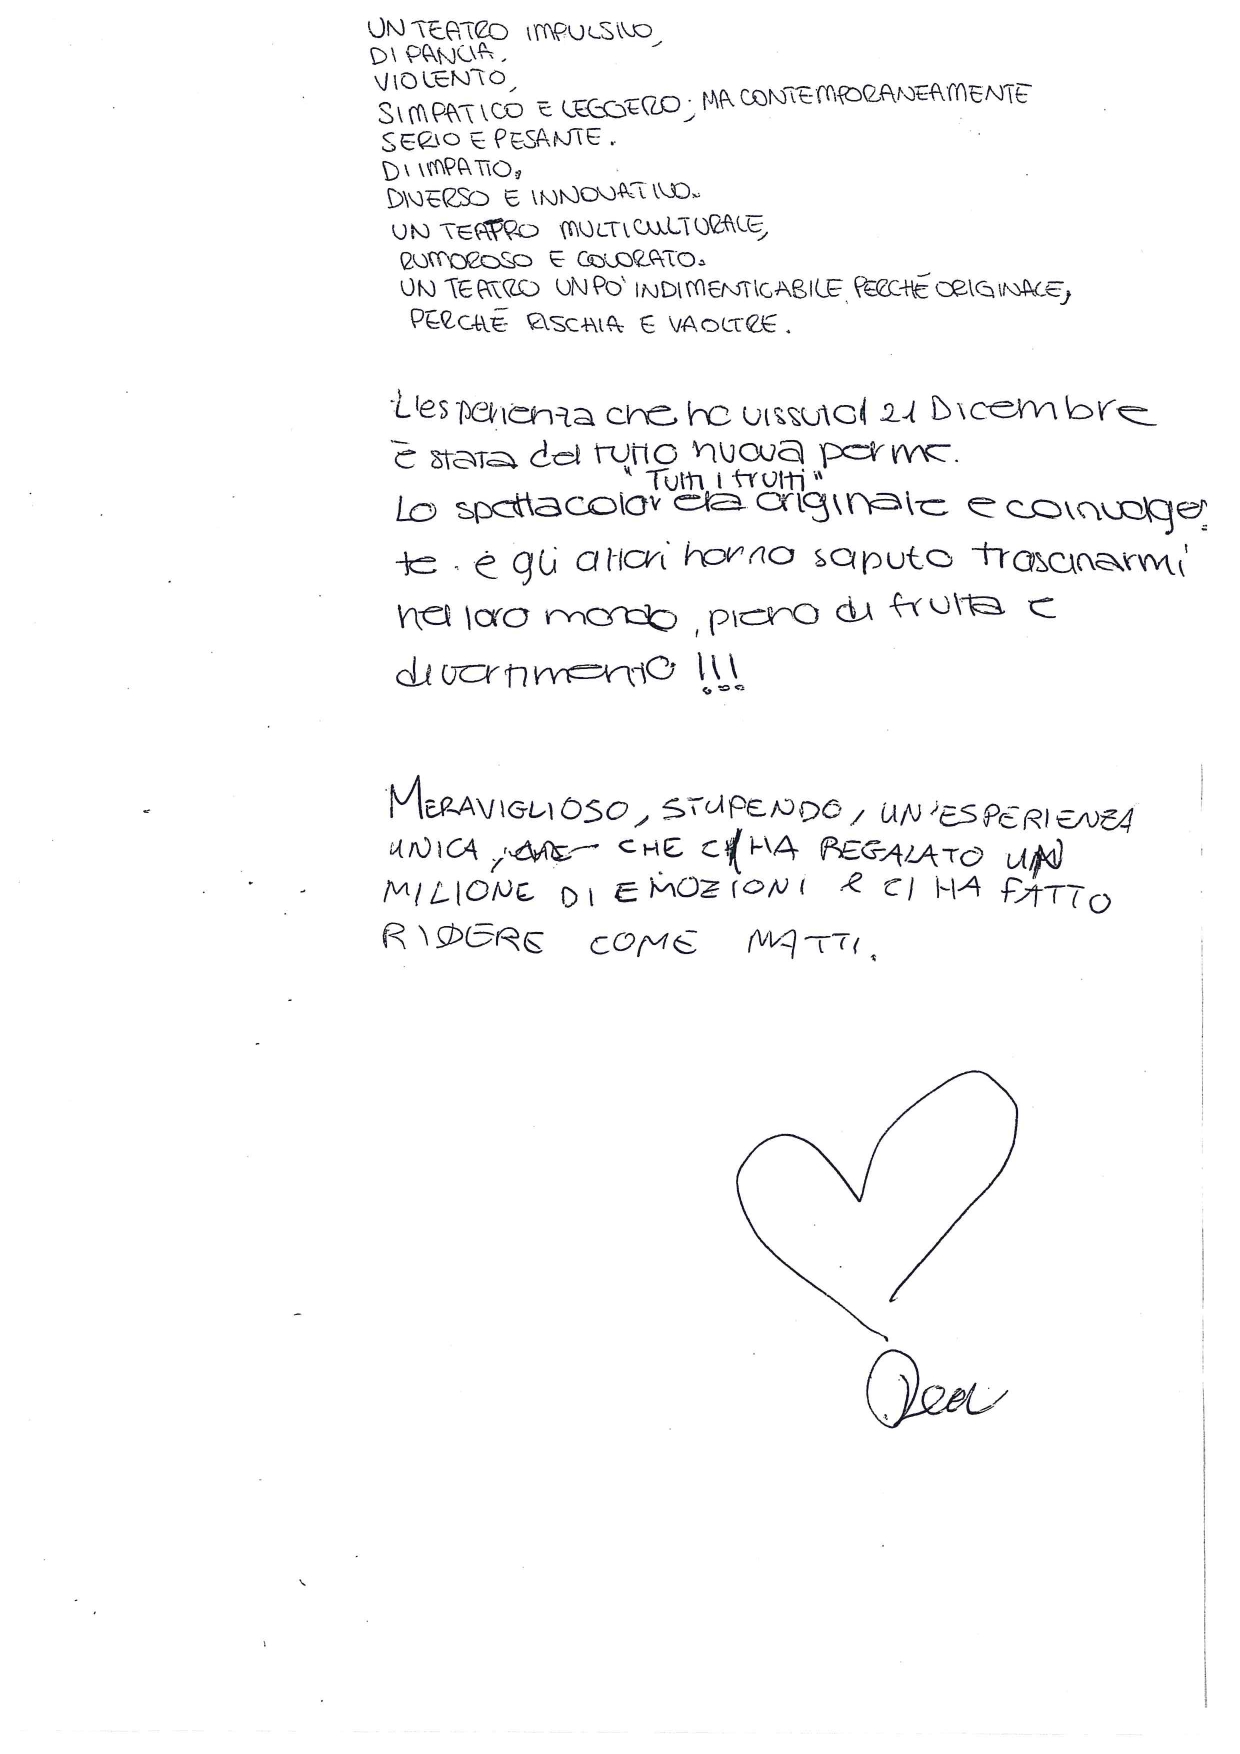 UN TEATRO IMPULSIVO,
DI PANCIA,
VIOLENTO,
SIMPATICO E LEGGERO; MA CONTEMPORANEAMENTE
SERIO E PESANTE.
DI IMPATTO,
DIVERSO E INNOVATIVO.
UN TEATRO MULTICULTURALE,
RUMOROSO E COLORATO.
UN TEATRO UN PO' INDIMENTICABILE PERCHÉ ORIGINALE,
PERCHÉ RISCHIA E VA OLTRE.
L'esperienza che ho vissuto il 21 Dicembre
è stata del tutto nuova per me.
"Tutti i frutti"
Lo spettacolo era originale e coinvolgen
te. e gli attori hanno saputo trascinarmi
nel loro mondo, pieno di frutta e
divertimento !!!
MERAVIGLIOSO, STUPENDO, UN'ESPERIENZA
UNICA, CHE CI HA REGALATO UN
MILIONE DI EMOZIONI e CI HA FATTO
RIDERE COME MATTI.